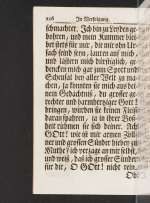 226 In Verfolgung.
schmachtet. Ich bin zu Leyden ge-
bohren, und mein Jammer blei-
bet stets für mir, die mir ohn Ur-
sach feind seyn, lauren auf mich,
und lästern mich hertziglich, ge-
dencken mich gar zum Spott und
Scheusal der aller Welt zu ma-
chen, ja könnten sie mich aus dei-
nem Gedächtniß, du großer ge-
rechter und barmhertziger Gott!
bringen, würden sie keinen Fleiß
daran spahren, ja in ihrer Boß-
heit rühmen sie sich deiner. Ach
GOtt! wie ist mir armen Sün-
der und großer Sünder hieben zu
Muthe? ich verzage an mir selbst,
und weiß, daß ich großer Sünder
für dir, O GOtt! nicht rein